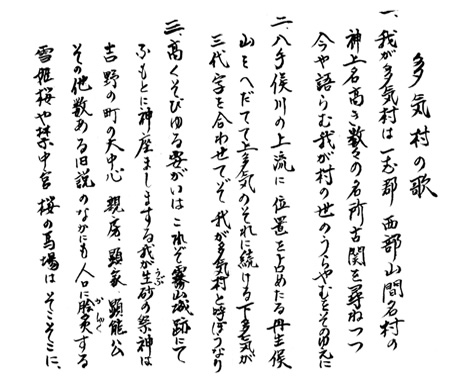 多気村の歌
一、我が多気村は一志郡 西部山間名村の
神上名高き数々の名所古関を尋ねつつ
今や語らむ我が村の世のうらやむをそのゆえに
二、八手俣川の上流に 位置を占めたる丹生俣
山をへだてて上多気のそれに続ける下多気が
三代字を合わせてぞ 我が多気村と呼ぼうなり
三、高くそびゆる要がいは これぞ霧山城跡にて
ふもとに神座ましまする我が生砂の祭神は
うぶ
吉野の町の大中心 親房、顕家、顕能公
その他数ある旧説のなかにも人口に膾炙する
かいしゃく
雪姫桜や 禁中宮 桜の馬場は そこそこに、